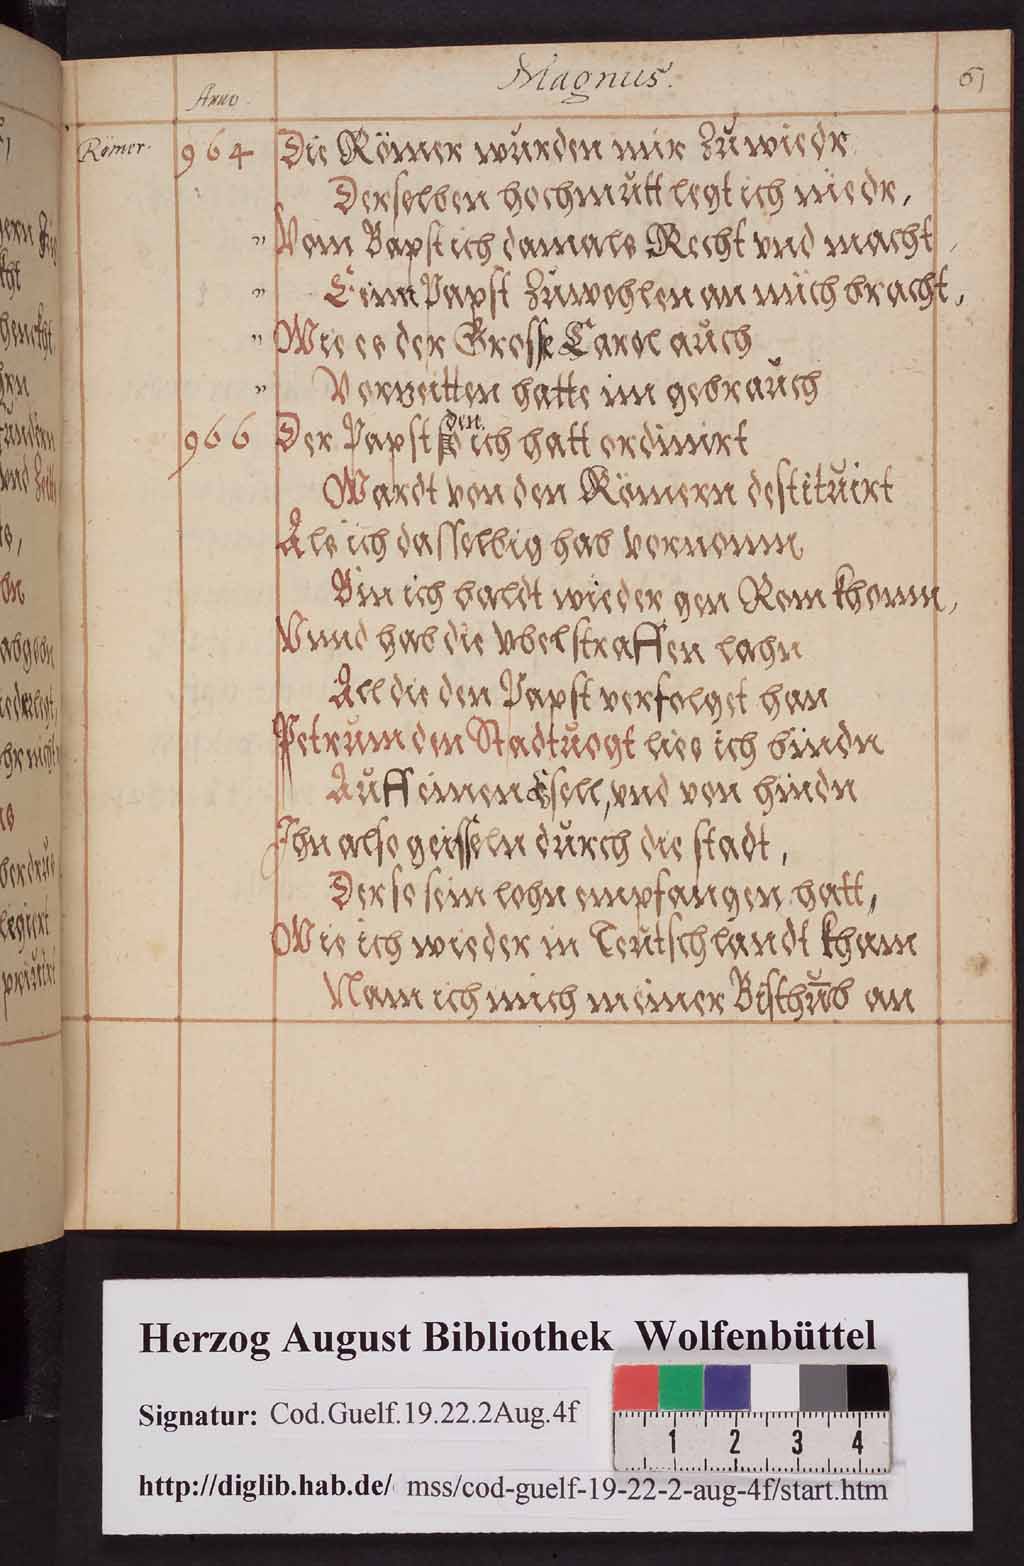 Magnus.
61
Anno.
Römer. 964 Die Römer wurden mir zuwiedr
Derselben hochmutt legt ich niedr,
" Vom Bapst ich damals Recht vnd macht,
" Eim Papst zuwehlen an mich bracht,
" Wie es der Grosse Carol auch
" Vorzeitten hatte im gebrauch
den
966 Der Papst so ich hatt ordinirt
Wardt von den Römern destituirt
Als ich dasselbig hab vernomn
Bin ich baldt wieder gen Rom khomn,
Vnnd hab die vbel straffen lahn
All die den Papst verfolget han
Petrum den Stadtuogt lies ich bindn
Auff einen Esell, vnd von hindn
Ihn also geisseln durch die stadt,
Der so sein lohn empfangen hatt,
Wie ich wieder in Teutschlandt kham
Nam ich mich meiner Bisthūb an
Herzog August Bibliothek Wolfenbüttel
Signatur: Cod.Guelf.19.22.2Aug.4f
1 2 3 4
http://diglib.hab.de/ mss/cod-guelf-19-22-2-aug-4f/start.htm